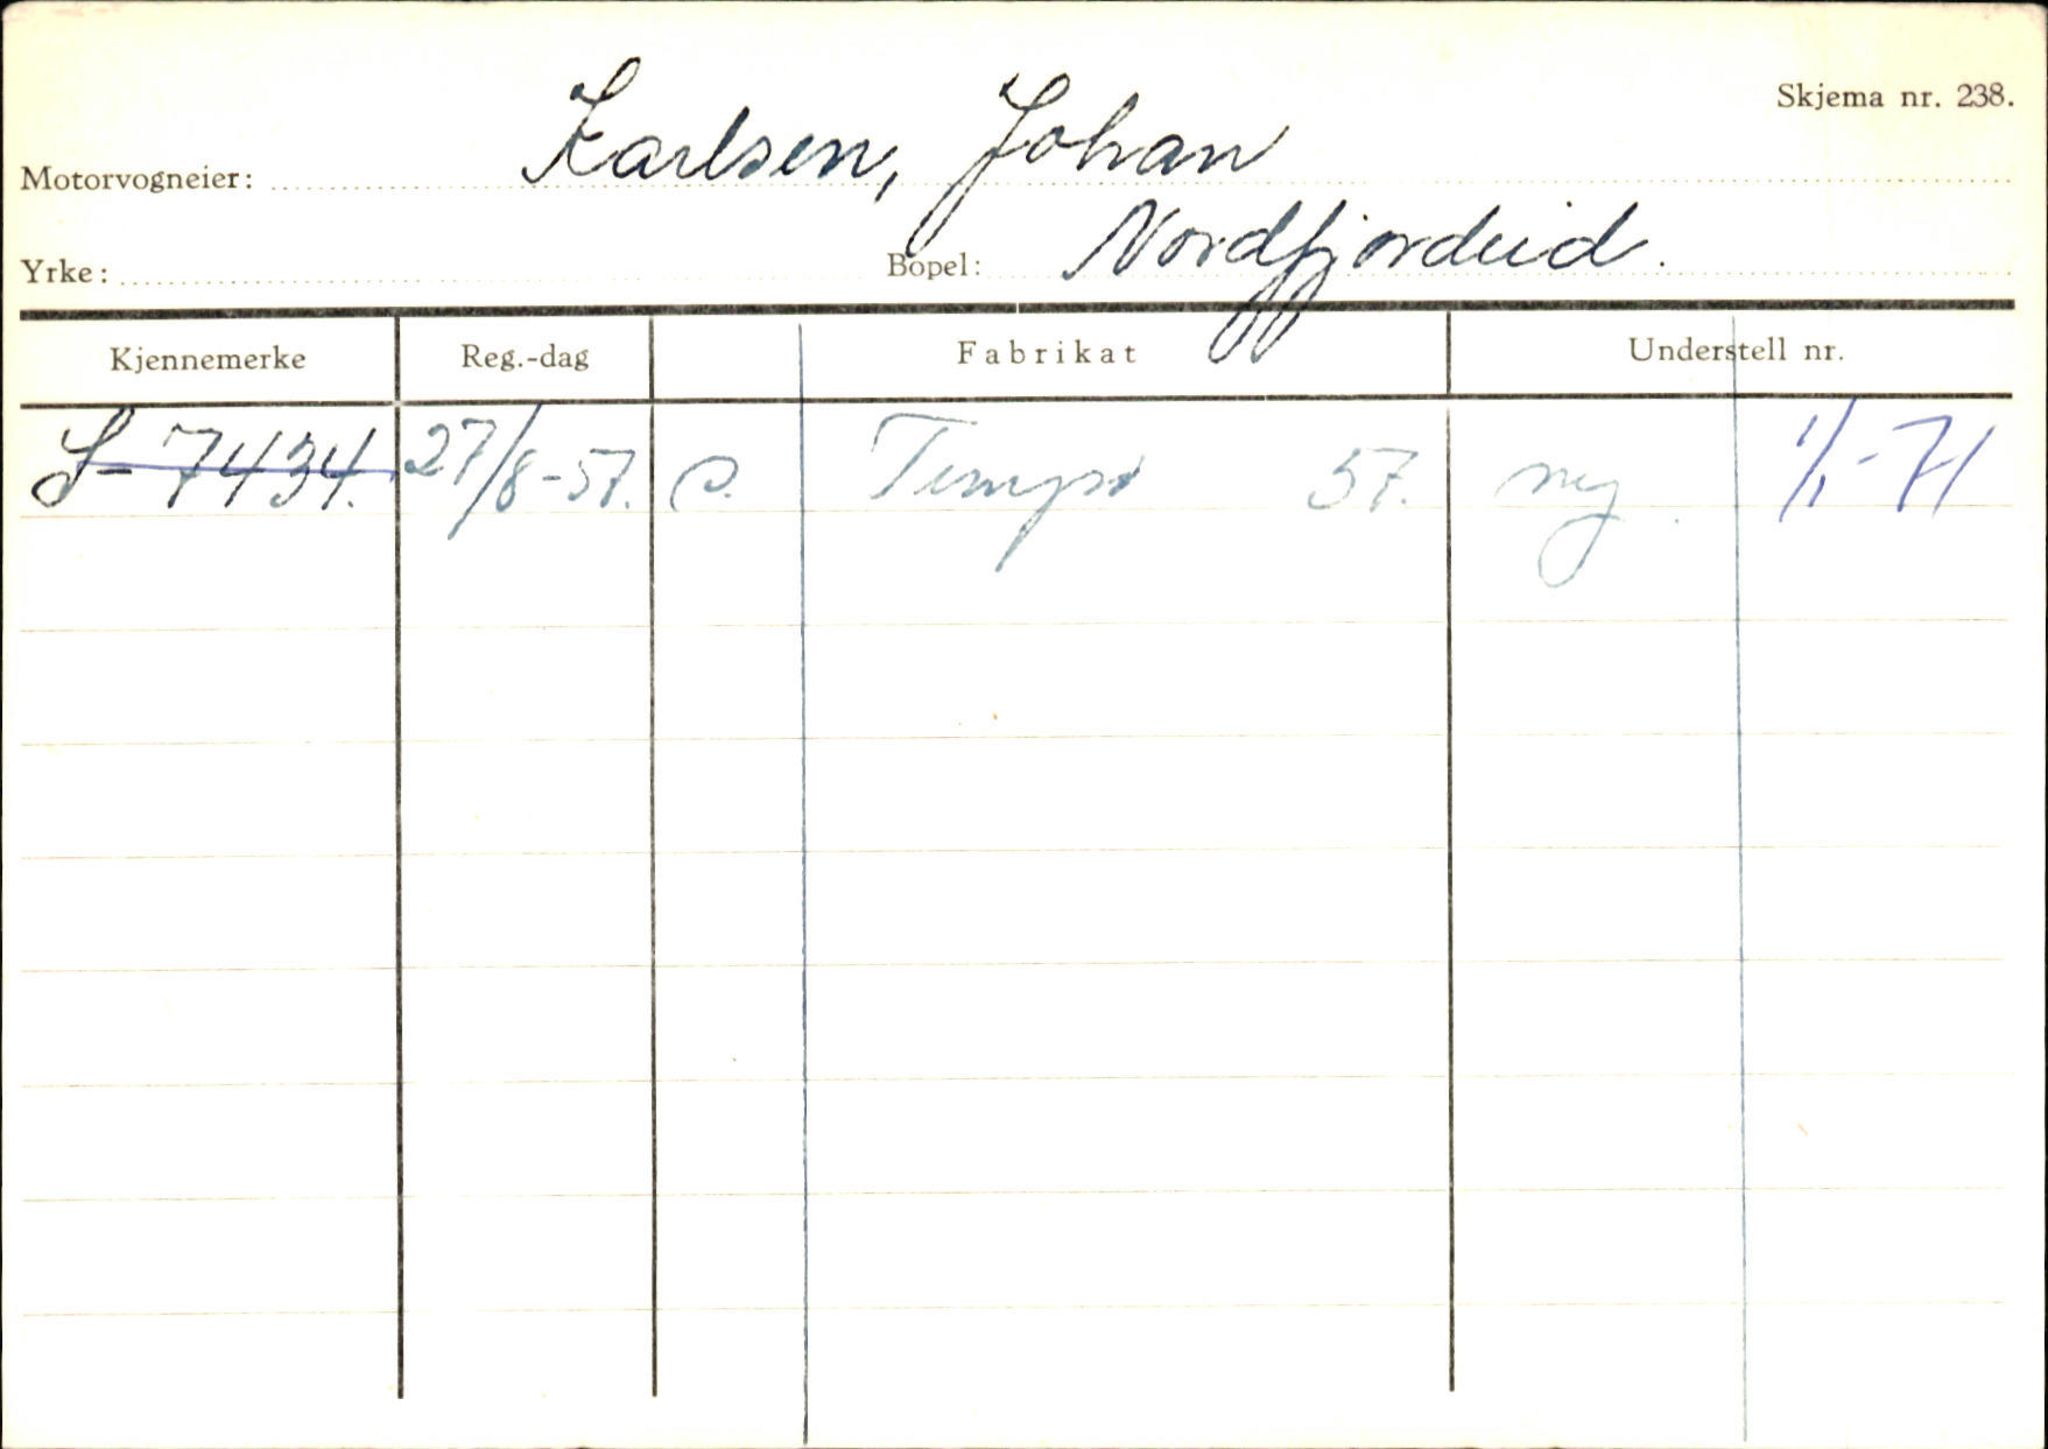 Skjema nr. 238.
Motorvogneier: Karlsen, Johan
Yrke: Bopel: Nordfjordeid.
Kjennemerke Reg.-dag Fabrikat Understell nr.
S-7434. 27/8-57. Tempo 57. ny. 1/1-71